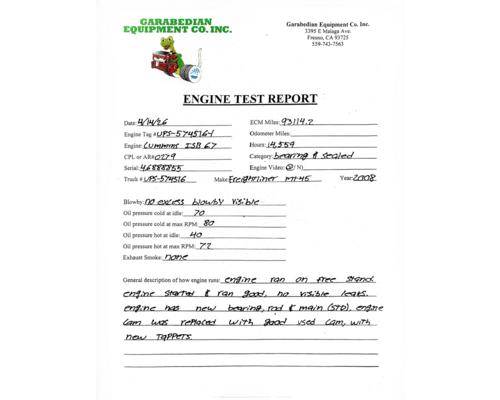 GARABEDIAN
EQUIPMENT CO. INC.
Garabedian Equipment Co. Inc.
3395 E Malaga Ave.
Fresno, CA 93725
559-743-7563
ENGINE TEST REPORT
Date: 4/14/26
ECM Miles: 93114.2
Engine Tag # UPS-574516-1
Odometer Miles:
Engine: Cummins ISB 6.7
Hours: 14,559
CPL or AR# 0279
Category: bearing & sealed
Serial: 46888855
Engine Video: Y/N)
Truck # UPS-574516
Make: Freightliner MT-45
Year: 2008
Blowby: no excess blowby visible
Oil pressure cold at idle: 70
Oil pressure cold at max RPM: 80
Oil pressure hot at idle: 40
Oil pressure hot at max RPM: 72
Exhaust Smoke: none
General description of how engine runs: engine ran on free stand.
engine started & ran good, no visible leaks.
engine has new bearing, rod & main (STD). engine
cam was replaced with good used cam, with
new tappets.